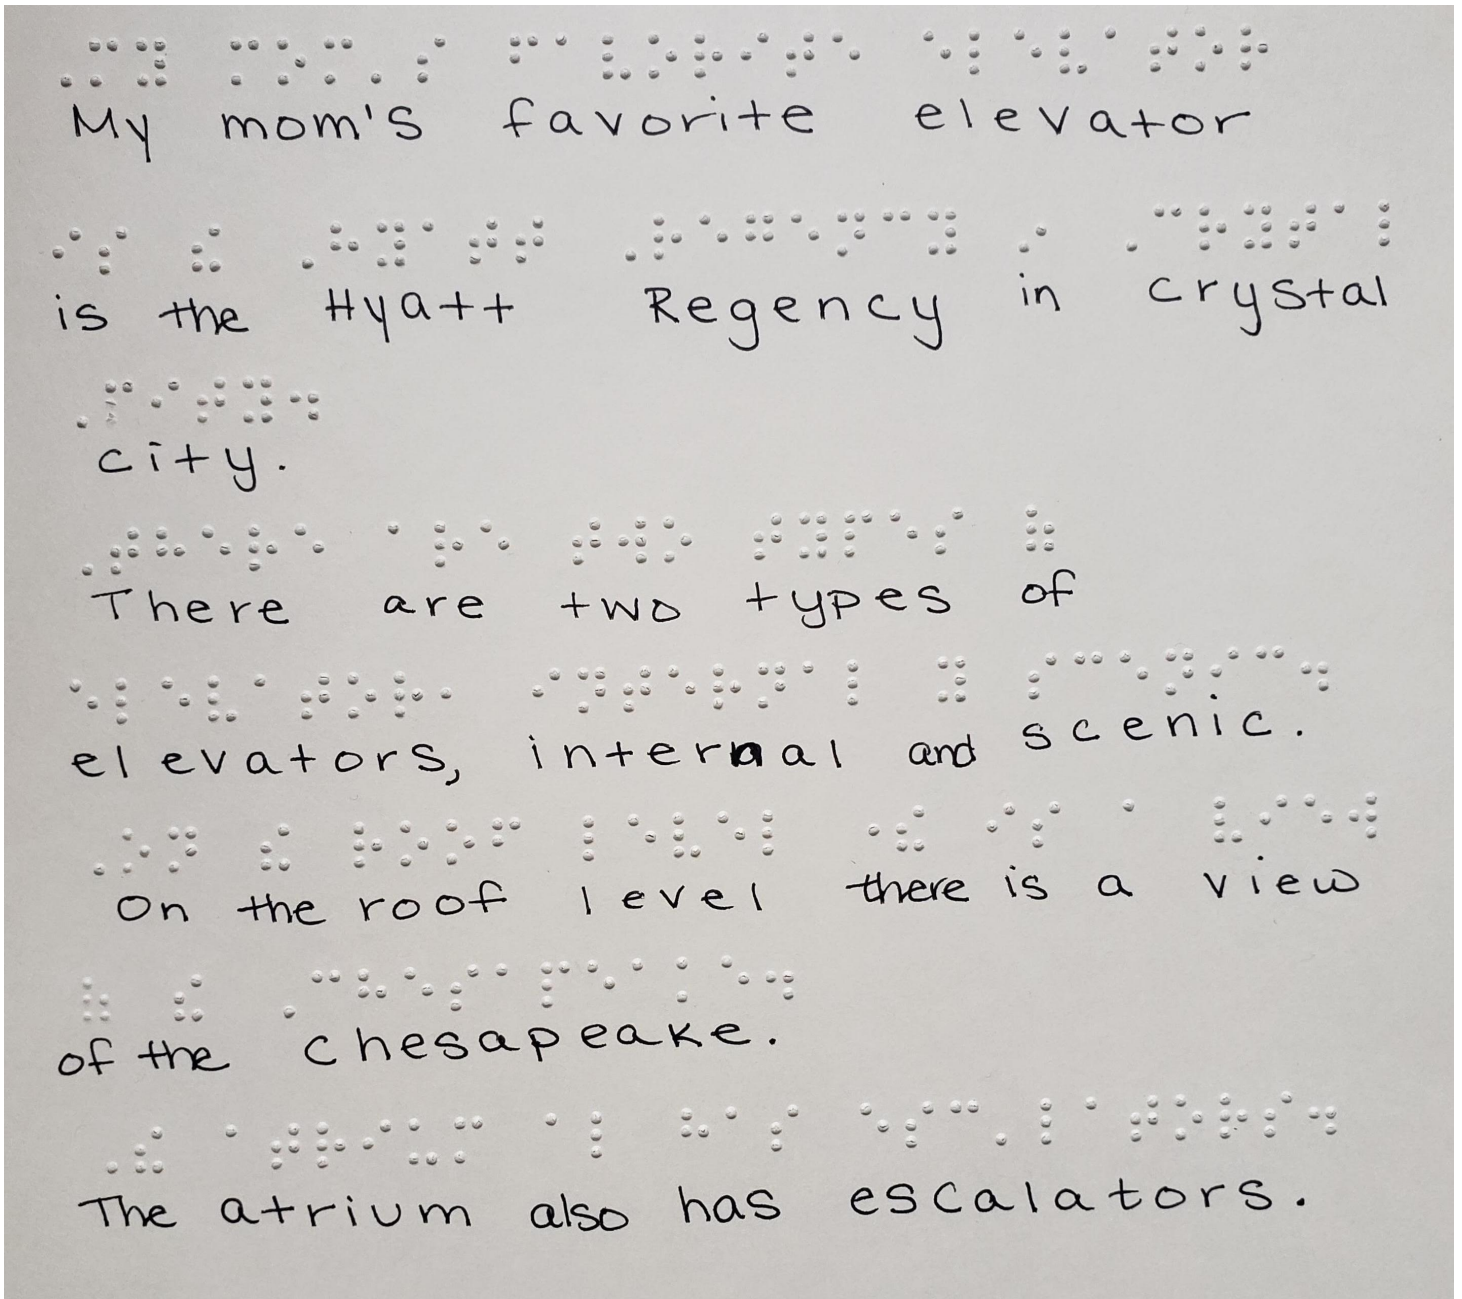 My mom's favorite elevator
is the Hyatt Regency in crystal
city.
There are two types of
elevators, internal and scenic.
On the roof level there is a view
of the chesapeake.
The atrium also has escalators.